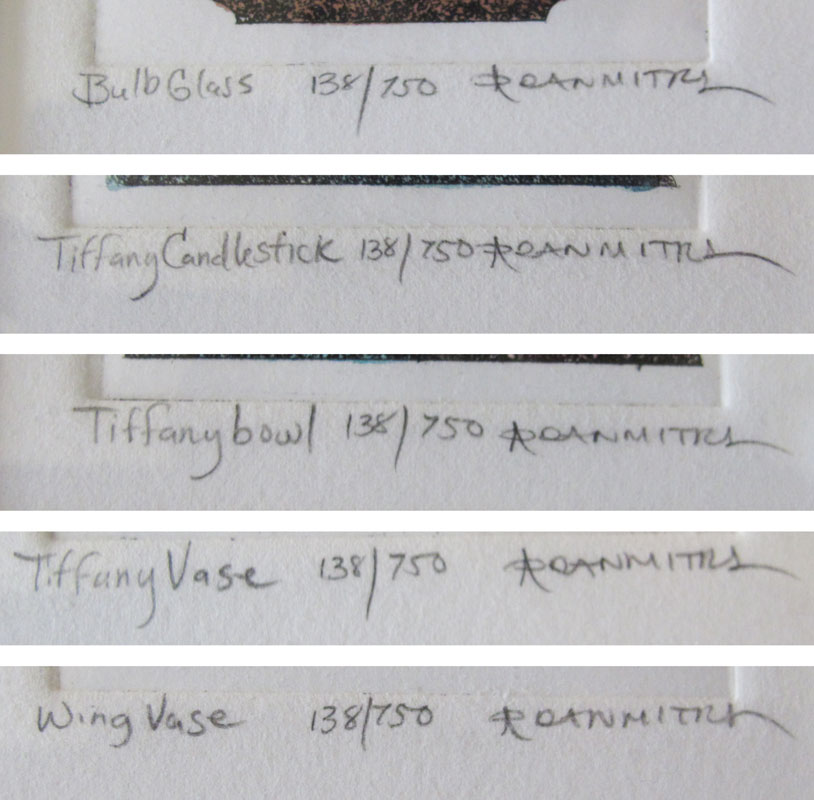 Bulb Glass 138/750 ROANMITRA
Tiffany Candlestick 138/750 ROANMITRA
Tiffany bowl 138/750 ROANMITRA
Tiffany Vase 138/750 ROANMITRA
Wing Vase 138/750 ROANMITRA